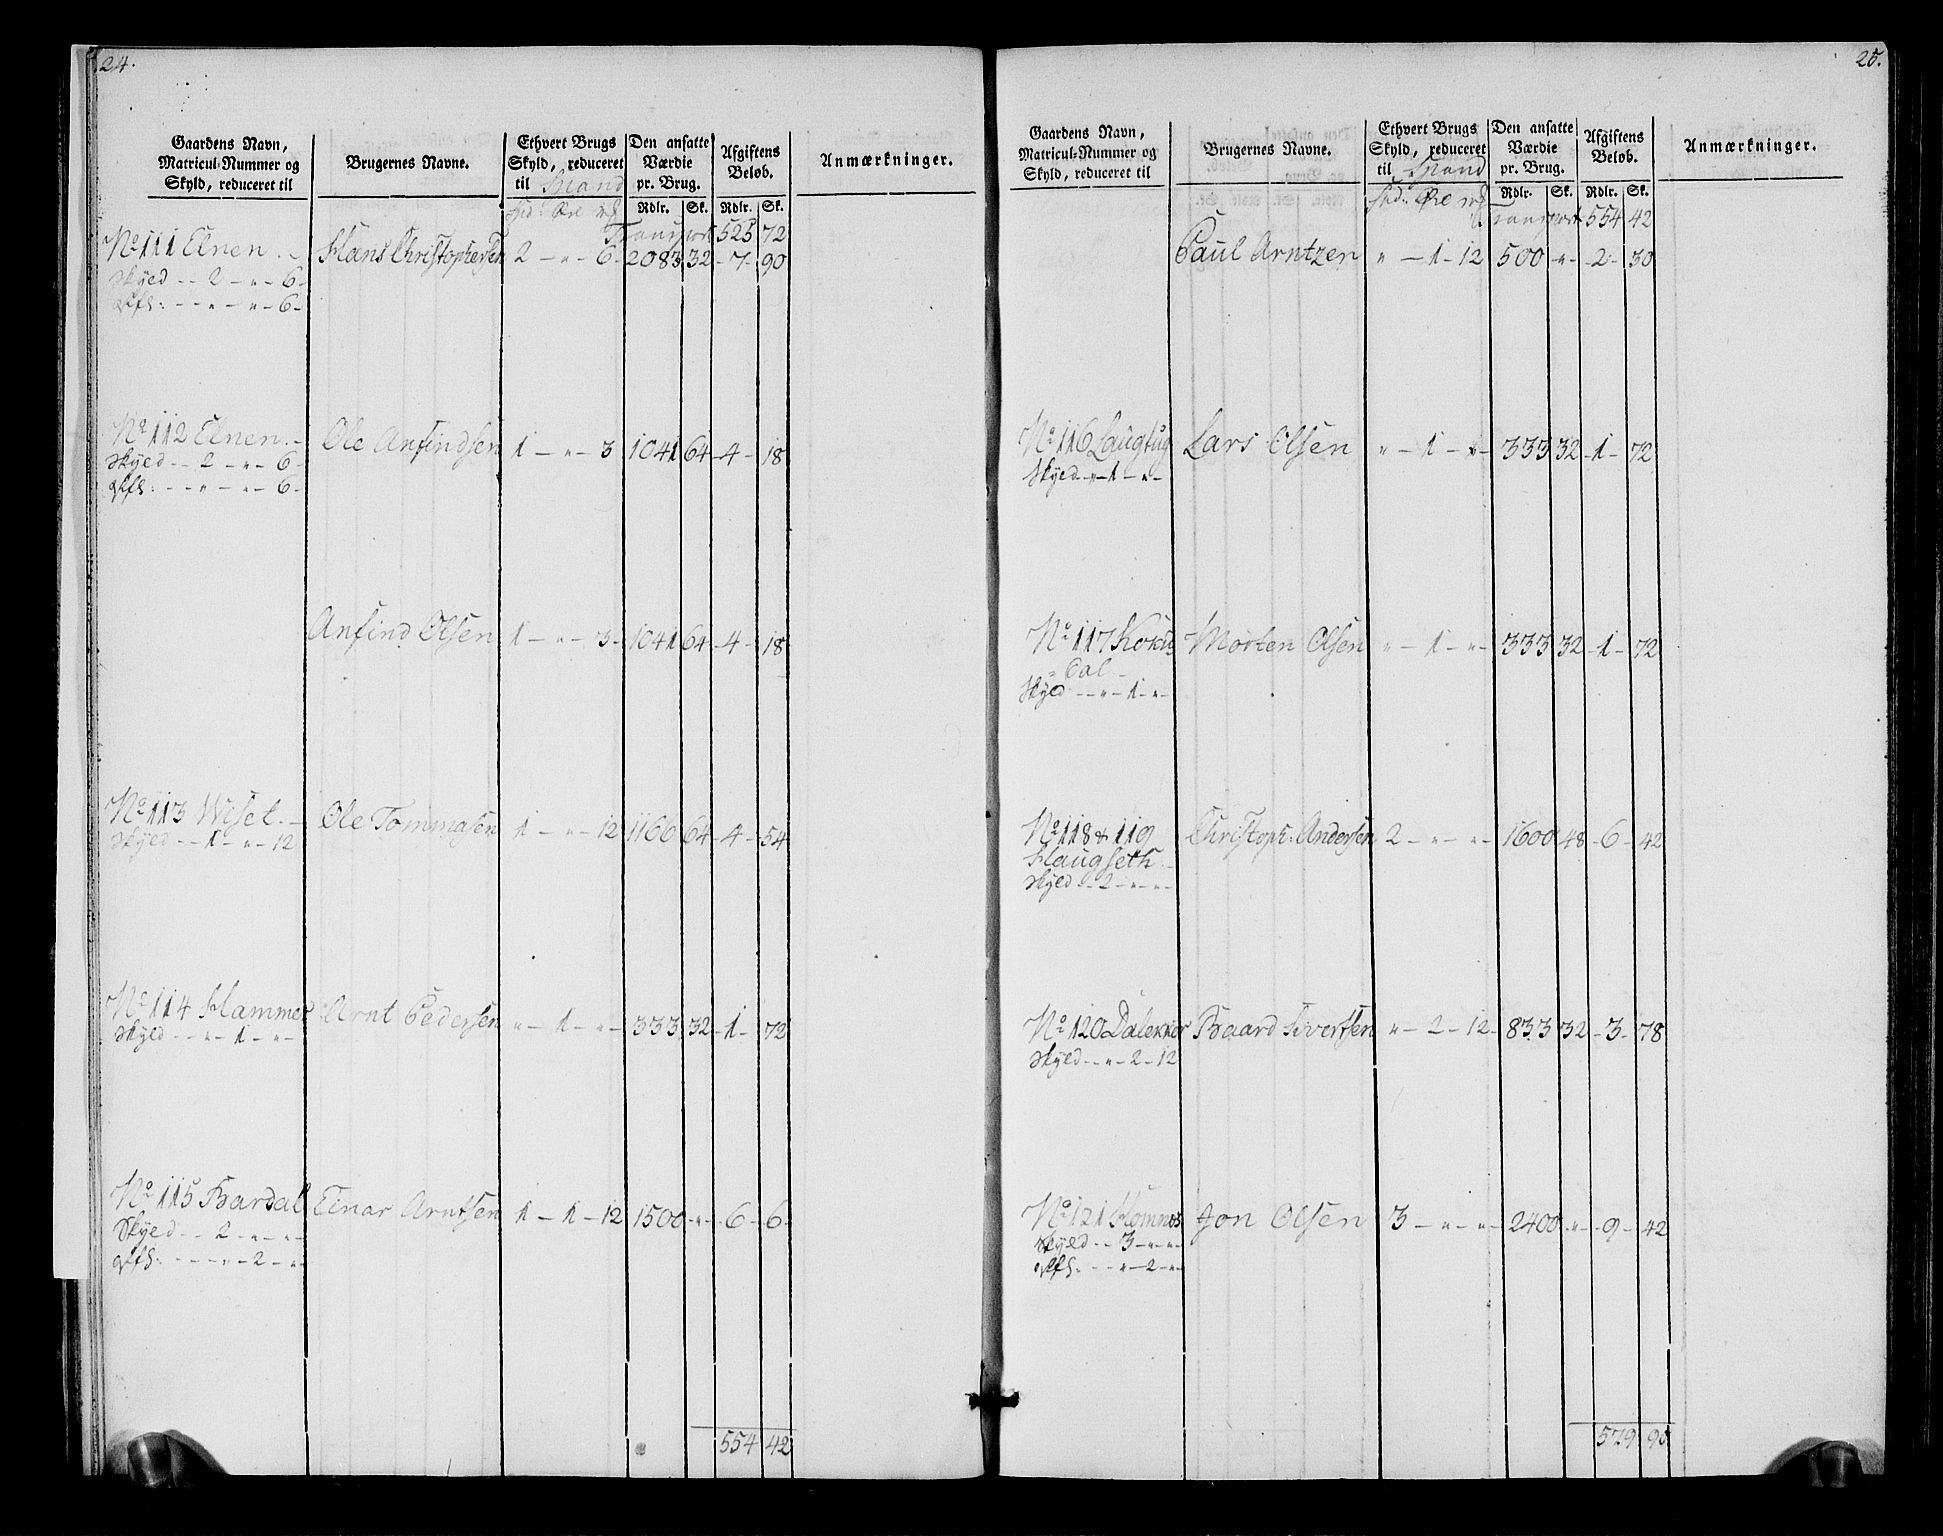 24.
Gaardens Navn, Matricul-Nummer og Skyld, reduceret til | Brugernes Navne. | Ethvert Brugs Skyld, reduceret til | Den ansatte Værdie pr. Brug. | Afgiftens Beløb. | Anmærkninger.
Rdlr. | Sk. | Rdlr. | Sk.
Transport 525 72
No 111 Elnen. Hans Christophersen 2 - " - 6 - 2083 32 - 7 - 90
Skyld - - 2 - " - 6 -
- - " - " - 6 -
No 112 Elnen. Ole Anfindsen 1 - " - 3 1041 64 - 4 - 18
Skyld - - 2 - " - 6 -
- - " - " - 6 -
Anfind Olsen 1 - " - 3 - 1041 64 - 4 - 18
No 113 Wiset. Ole Tommasen 1 - " - 12 1166 64 - 4 - 54
Skyld - - 1 - " - 12
No 114 Hammer Arnt Pedersen " - 1 - " - 333 32 - 1 - 72
Skyld - - " - 1 - " -
No 115 Bardal Einar Arntsen 1 - 1 - 12 1500 - " - 6 - 6 -
Skyld - - 2 - " - " -
- - " - 2 - " -
554 42
25.
Gaardens Navn, Matricul-Nummer og Skyld, reduceret til | Brugernes Navne. | Ethvert Brugs Skyld, reduceret til | Den ansatte Værdie pr. Brug. | Afgiftens Beløb. | Anmærkninger.
Rdlr. | Sk. | Rdlr. | Sk.
Transport 554 42
Paul Arntzen " - 1 - 12 500 - " - 2 - 30
No 116 Lars Olsen " - 1 - " - 333 32 - 1 - 72
Skyld - " - 1 - " -
No 117 Morten Olsen " - 1 - " - 333 32 - 1 - 72
= dal -
Skyld - - " - 1 - " -
No 118 & 119 Christoph: Andersen 2 - " - " - 1600 48 - 6 - 42
Haugseth
Skyld - - 2 - " - " -
No 120 Dalekner Baard Sivertsen " - 2 - 12 - 833 32 - 3 - 78
Skyld - - " - 2 - 12
No 121 Homnes Jon Olsen 3 - " - " - 2400 - " - 9 - 42
Skyld - - 3 - " - " -
- - " - 2 - " -
579 90